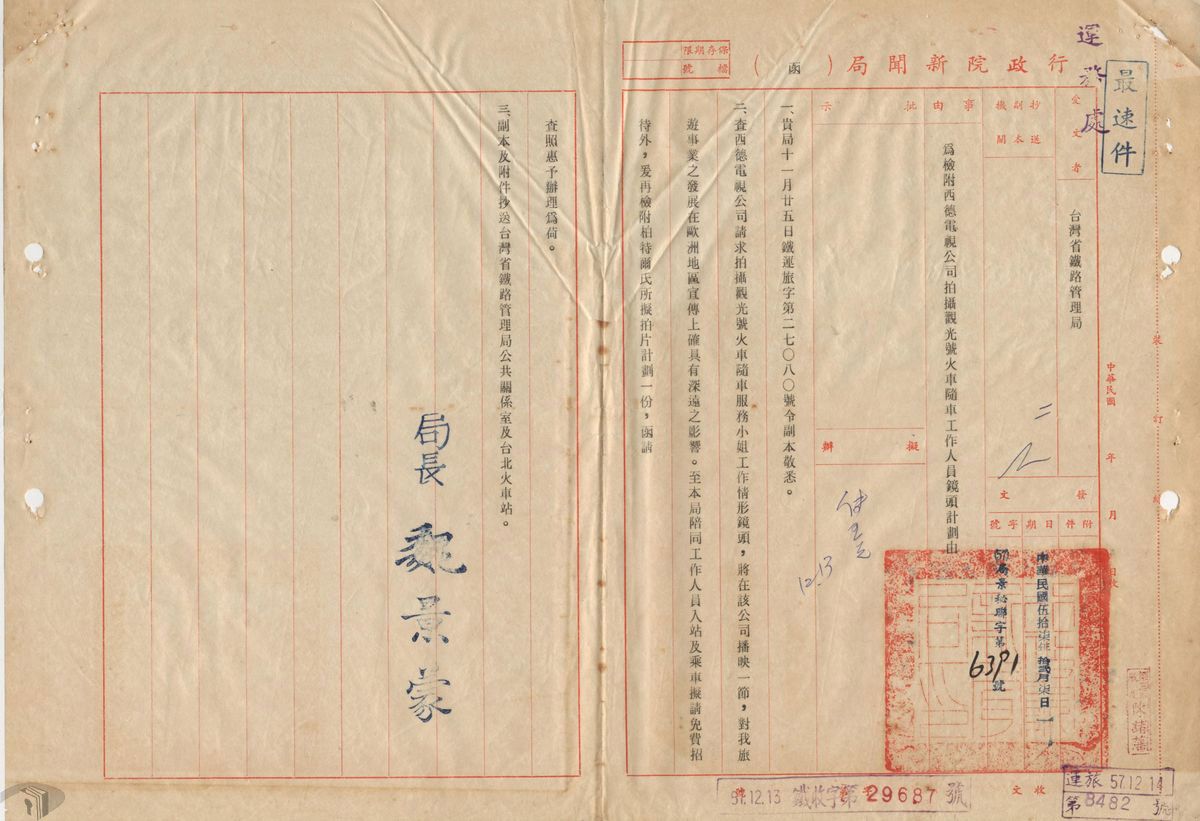 最速件
運務處
行政院新聞局（函）
保存期限
檔號
受文者
台灣省鐵路管理局
抄送副本機關
事由
為檢附西德電視公司拍攝觀光號火車隨車工作人員鏡頭計劃由
批示
擬辦
12.13
發文
附件
日期
字號
中華民國伍拾柒年拾貳月柒日
(57)局景秘聯字第6391號
一、貴局十一月廿五日鐵運旅字第二七〇八〇號令副本敬悉。
二、查西德電視公司請求拍攝觀光號火車隨車服務小姐工作情形鏡頭，將在該公司播映一節，對我旅
遊事業之發展在歐洲地區宣傳上確具有深遠之影響。至本局陪同工作人員入站及乘車擬請免費招
待外，爰再檢附柏待爾氏所擬拍片計劃一份，函請
查照惠予辦理為荷。
三、副本及附件抄送台灣省鐵路管理局公共關係室及台北火車站。
局長 魏景蒙
中華民國 年 月
裝訂線
收文
57.12.13 鐵收字第29687號
運旅 57.12.14
第8482號